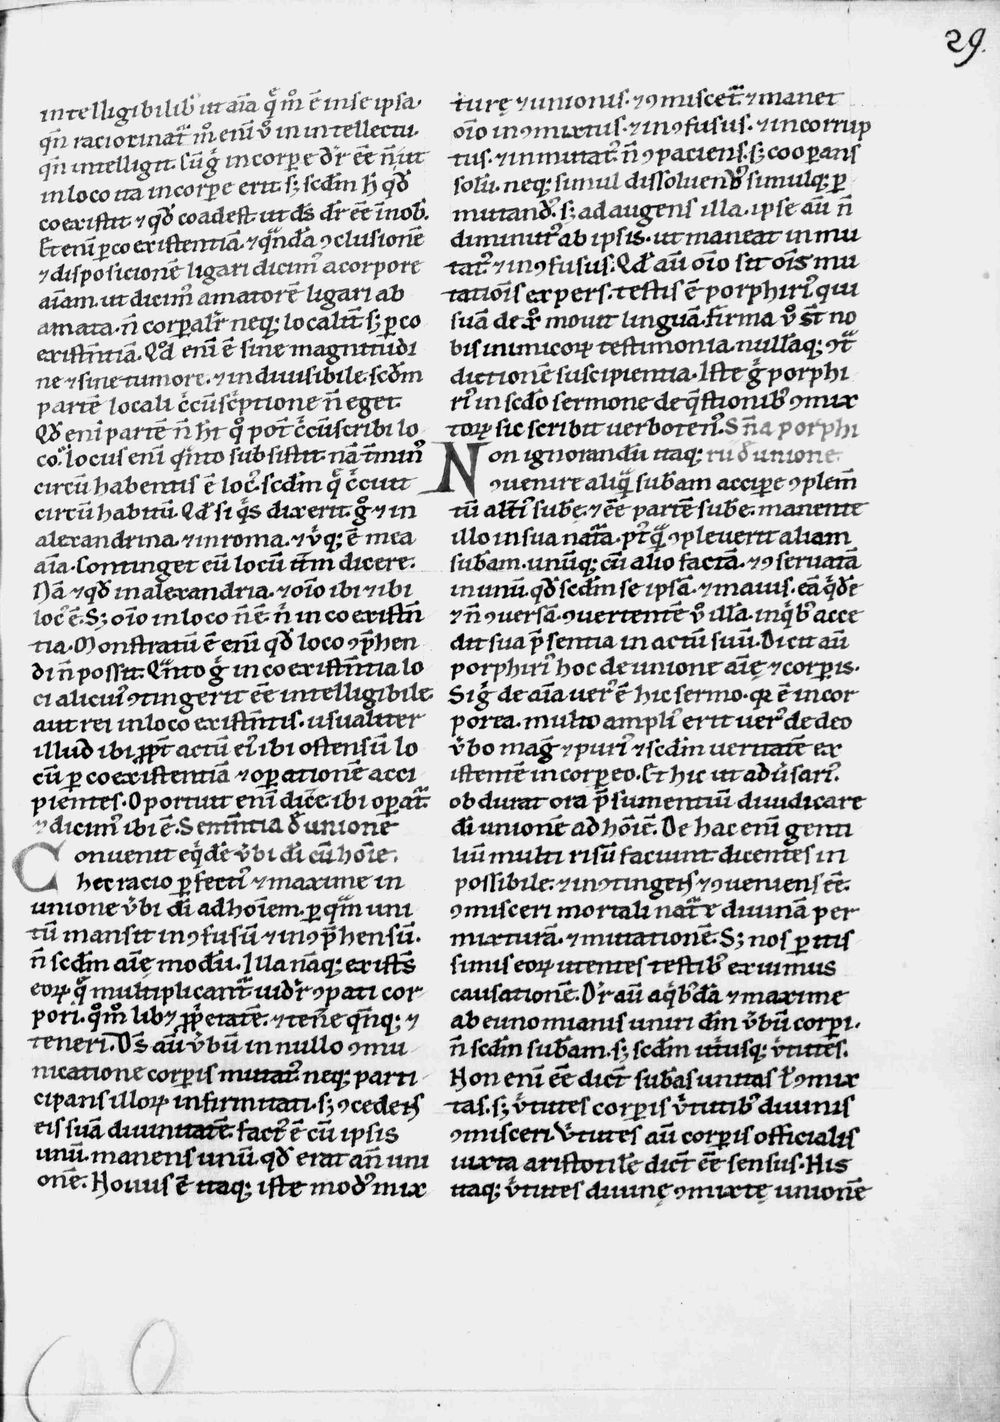 29.
intelligibilib; ut aīa q̄ m̊ ē in se ipsa.
qn̄ raciocinat̄ m̊ enī ů in intellectu.
qn̄ intelligit. sūg̊ in corpe dr̄ eē n̄ ut
in loco ita in corpe erit s; scdm h̄ qd̄
coexistit ⁊ qd̄ coadest ut ds̄ dr̄ eē in nob̄.
Et enī p coexistentiā. ⁊ qn̄dā ꝯclusionē
⁊ disposicionē ligari dicim᷒ a corpore
aīam. ut dicim᷒ amatorē ligari ab
amata. n̄ corpalr̄ neq; localit̄ s; p co
existn̄tiā. Qd̄ enī ē sine magnitudi
ne ⁊ sine tumore. ⁊ indiuisibile scdm
partē locali c̊cūsc̊ptione n̄ eget.
Qd̄ enī partē n̄ ht q̊ pot̄ c̊cūscribi lo
co. locus enī q̊nto subsistit. nā t̄min᷒
circū habentis ē loc᷒. scdm q̄ c̊cuit
circū habitū. Qd̄ si q̊s dixerit. g̊ ⁊ in
alexandrina. ⁊ in roma. ⁊ ůq; ē mea
aīa. Continget eū locū itm̄ dicere.
Nā ⁊ qd̄ in alexandria. ⁊ oīo ibi ⁊ ibi
loc᷒ ē. S; oīo in loco n̄ ē. n̄ in coexistn̄
tia. Monstratū ē enī qd̄ loco ꝯp̄hen
di n̄ possit. Qn̄to g̊ in coexistn̄tia lo
ci alicui᷒ ꝯtingerit eē intelligibile
aut rei in loco existn̄tis. usualiter
illud ibi ꝓpt̄ actū ei᷒ ibi ostensū lo
cū p coexistentiā ⁊ opationē acci
pientes. Oportuit enī dic̄e. ibi opat̄
⁊ dicim᷒ ibi ē. Sentn̄tia d̄ unione
Conuenit eq̊de ůbi di cū hoīe.
hec racio pfecti᷒ ⁊ maxime in
unione ůbi di ad hoīem. p qm̄ uni
tū mansit inꝯfusū ⁊ inꝯp̄hensū.
n̄ scdm aīę modū. Illa nāq; existn̄s
eoꝝ q̄ multiplicant̄ uidr̄ ꝯpati cor
pori. q̊m̊ lib; ⁊ ꝓp̊etatē. ⁊ tenē qn̄q; ⁊
teneri. Ds̄ aū ůbū in nullo ꝯmu
nicatione corpis mutat᷒ neq; parti
cipans illoꝝ infirmitati. s; ꝯcedens
eis suā diuinitatē. fact᷒ ē cū ipsis
unū. manens unū. qd̄ erat an̄ uni
onē. Houus ē itaq; iste mod᷒ mix
turę ⁊ unionis. ⁊ ꝯmiscet̄ ⁊ manet
oīo inꝯmixtus. ⁊ inꝯfusus. ⁊ incorrup
tus. ⁊ inmutat᷒ n̄ ꝯpaciens. s; coopans
solū. neq; simul dissoluend᷒ simulq; p
mutand᷒. s; adaugens illa. ipse aū n̄
diminut᷒ ab ipsis. ut maneat inmu
tat᷒ ⁊ inꝯfusus. Qd̄ aū oīo sit oīs mu
tatiois expers. testis ē porphiri᷒ qui
suā de xp̊o mouit linguā. firma ů st̄ no
bis inimicoꝝ testimonia. nullāq; ꝯt̄
dictionē suscipientia. Iste g̊ porphi
ri᷒ in scdo sermone de q̄stionib᷒ ꝯmix
toꝝ sic scribit uerboten᷒. Sn̄a porphi
Non ignorandū itaq; rii d̄ unione.
ꝯuenire aliq̄ subam accipe ꝯplem̄
tū alti᷒ sube. ⁊ eē partē sube. manente
illo in sua nat̄a. pt̄q̄ ꝯpleuerit aliam
subam. unūq; cū alio factā. ⁊ ꝯseruatā
in unū. qd̄ scdm se ipsā. ⁊ maius. eā q̊de
⁊ n̄ ꝯuersā. ꝯuertentē ů illa. inq̊b᷒ acce
dit sua p̄sentia in actū suū. Dicit aū
porphiri᷒ hoc de unione aīę ⁊ corpis.
Sig̊ de aīa uer᷒ ē hic sermo. qr ē incor
porea. multo ampli᷒ erit uer᷒ de deo
ůbo mag̊ ⁊ puri᷒ ⁊ scdm ueritatē ex
istente incorpeo. Et hic ut aduůsari᷒.
obdurat ora p̄sumentiū diiudicare
di unionē ad hoīē. De hac enī genti
liū multi risū faciunt dicentes in
possibile. ⁊ inꝯtingens ⁊ ꝯueniens eē.
ꝯmisceri mortali nat̄e diuinā per
mixturā. ⁊ mutationē. S; nos pitis
simis eoꝝ utentes testib᷒ exuimus
causationē. Dr̄ aū aq̊b᷒dā ⁊ maxime
ab eunomianis uniri dm̄ ůbū corpi.
n̄ scdm subam. s; scdm ut̊iusq; ůtutes.
Non enī eē dict̄ subas unitas l᷒ ꝯmix
tas. s; ůtutes corpis ůtutib᷒ diuinis
ꝯmisceri. ůtutes aū corpis officialis
iuxta aristotile dict̄ eē sensus. His
itaq; ůtutes diuinę ꝯmixtę unionē